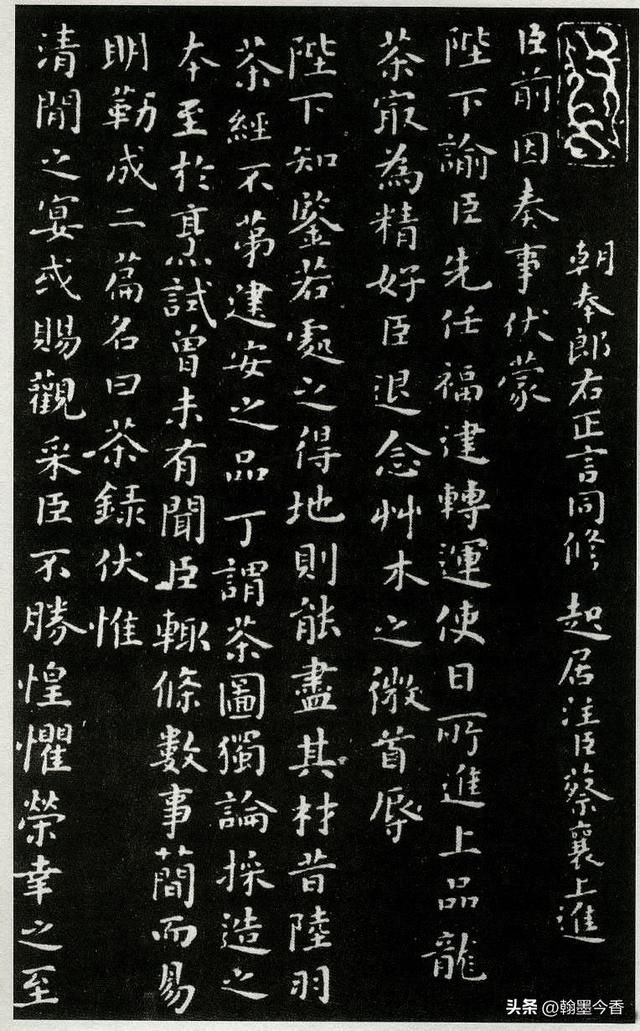 朝奉郎右正言同修起居注臣蔡襄上進
臣前因奏事伏蒙
陛下諭臣先任福建轉運使日所進上品龍
茶㝡為精好臣退念艸木之微首辱
陛下知鑒若處之得地則能盡其材昔陸羽
茶經不第建安之品丁謂茶圖獨論採造之
本至於烹試曾未有聞臣輙條數事簡而易
明勒成二篇名曰茶録伏惟
清閒之宴或賜觀采臣不勝惶懼榮幸之至
头条 @翰墨今香